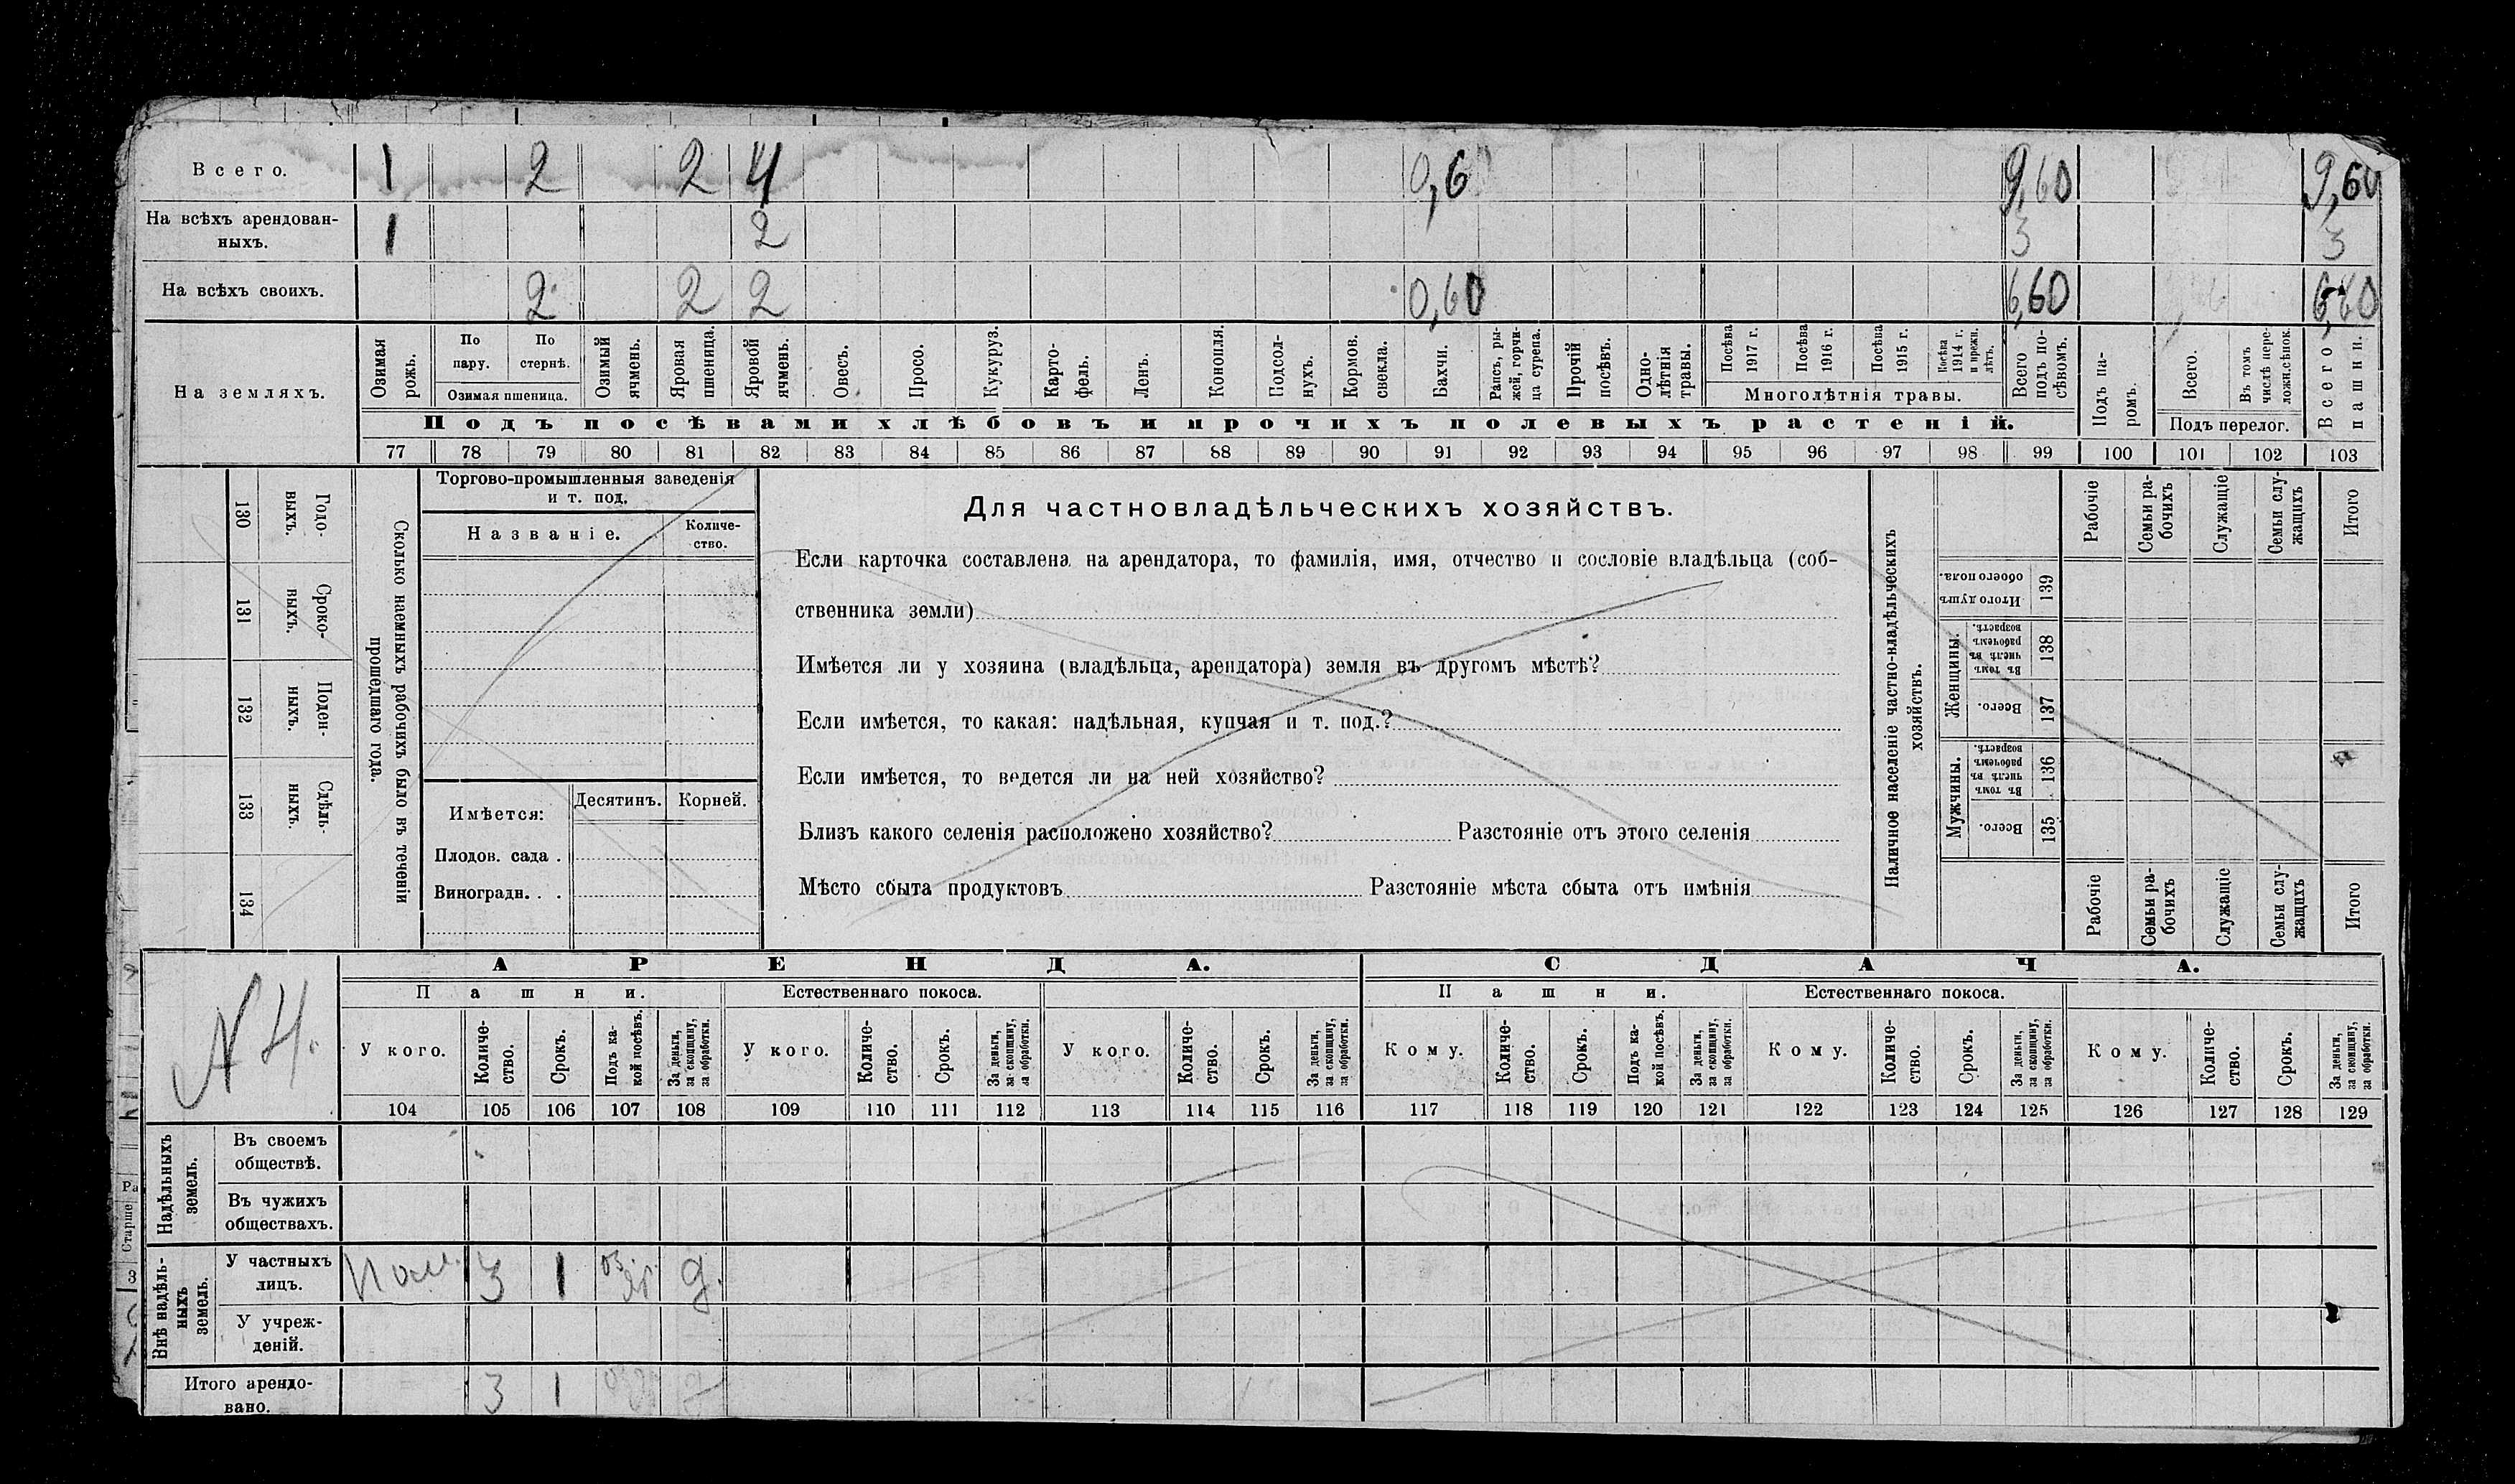 Всего. 1 2 2 4 0,6 9,60 9,60
На всѣхъ арендован-
ныхъ. 1 2 3 3
На всѣхъ своихъ. 2 2 2 0,60 6,60 6,60
На земляхъ.
Озимая рожь.
По пару.
По стернѣ.
Озимая пшеница.
Озимый ячмень.
Яровая пшеница.
Яровой ячмень.
Овесъ.
Просо.
Кукуруз.
Карто-
фель.
Ленъ.
Конопля.
Подсол-
нухъ.
Кормов. свекла.
Бахчи.
Рапсъ, ры-
жей, горчи-
ца сурепа.
Прочій посѣвъ.
Одно-
лѣтнія травы.
Посѣва 1917 г.
Посѣва 1916 г.
Посѣва 1915 г.
Посѣва 1914 г. и прежн. лѣтъ.
Многолѣтнія травы.
Всего подъ по-
сѣвомъ.
Подъ па-
ромъ.
Всего.
Въ томъ числѣ пере-
ложн. сѣнок.
Подъ перелог.
Всего пашни.
Подъ посѣвами хлѣбовъ и прочихъ полевыхъ растеній.
77 78 79 80 81 82 83 84 85 86 87 88 89 90 91 92 93 94 95 96 97 98 99 100 101 102 103
130 Годо-
выхъ.
131 Сроко-
выхъ.
132 Поден-
ныхъ.
133 Сдѣль-
ныхъ.
134
Сколько наемныхъ рабочихъ было въ теченіи
прошедшаго года.
Торгово-промышленныя заведенія
и т. под.
Названіе.
Количе-
ство.
Имѣется: Десятинъ. Корней.
Плодов. сада .
Виноградн. . .
Для частновладѣльческихъ хозяйствъ.
Если карточка составлена на арендатора, то фамилія, имя, отчество и сословіе владѣльца (соб-
ственника земли)
Имѣется ли у хозяина (владѣльца, арендатора) земля въ другомъ мѣстѣ?
Если имѣется, то какая: надѣльная, купчая и т. под.?
Если имѣется, то ведется ли на ней хозяйство?
Близъ какого селенія расположено хозяйство? Разстояніе отъ этого селенія
Мѣсто сбыта продуктовъ Разстояніе мѣста сбыта отъ имѣнія
Наличное населеніе частно-владѣльческихъ
хозяйствъ.
Рабочіе
Семьи ра-
бочихъ
Служащіе
Семьи слу-
жащихъ
Итого
Итого душъ обоего пола. 139
Женщины.
Въ томъ числѣ въ рабочемъ возрастѣ. 138
Всего. 137
Мужчины.
Въ томъ числѣ въ рабочемъ возрастѣ. 136
Всего. 135
Рабочіе
Семьи ра-
бочихъ
Служащіе
Семьи слу-
жащихъ
Итого
N 4.
АРЕНДА. СДАЧА.
Пашни. Естественнаго покоса. Пашни. Естественнаго покоса.
У кого.
Количе-
ство.
Срокъ.
Подъ ка-
кой посѣвъ.
За деньги,
за скопщину,
за обработки.
У кого.
Количе-
ство.
Срокъ.
За деньги,
за скопщину,
за обработки.
У кого.
Количе-
ство.
Срокъ.
За деньги,
за скопщину,
за обработки.
Кому.
Количе-
ство.
Срокъ.
Подъ ка-
кой посѣвъ.
За деньги,
за скопщину,
за обработки.
Кому.
Количе-
ство.
Срокъ.
За деньги,
за скопщину,
за обработки.
Кому.
Количе-
ство.
Срокъ.
За деньги,
за скопщину,
за обработки.
104 105 106 107 108 109 110 111 112 113 114 115 116 117 118 119 120 121 122 123 124 125 126 127 128 129
Надѣльныхъ
земель.
Въ своемъ
обществѣ.
Въ чужихъ
обществахъ.
Внѣ надѣль-
ныхъ
земель.
У частныхъ
лицъ. Пом. 3 1 оз. яр. д.
У учреж-
деній.
Итого арендо-
вано. 3 1 д
Ра
Старше
3